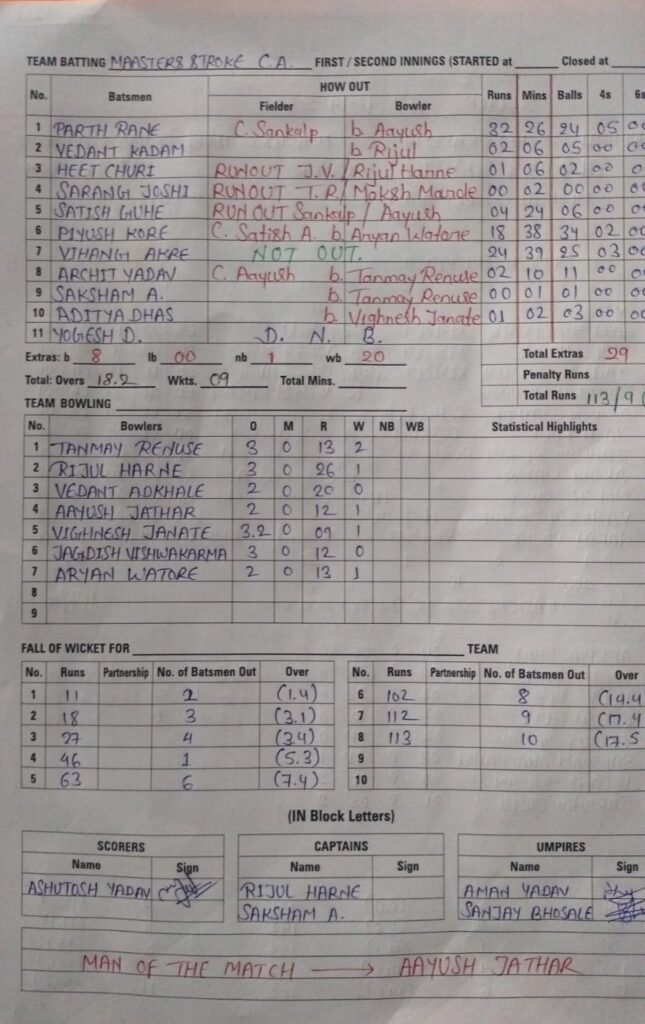 TEAM BATTING MAASTERS STROKE C.A. FIRST / SECOND INNINGS (STARTED at Closed at
No. Batsmen HOW OUT Runs Mins Balls 4s 6s
Fielder Bowler
1 PARTH RANE C. Sankalp b. Aayush 32 26 24 05
2 VEDANT KADAM b. Rijul 02 06 05 00
3 HEET CHURI RUNOUT J.V. / Rijul Harne 01 06 02 00
4 SARANG JOSHI RUNOUT T.R. / Moksh Marde 00 02 00 00
5 SATISH GUHE RUN OUT Sankalp / Aayush 04 24 06 00
6 PIYUSH KORE C. Satish A. b. Aryan Watone 18 38 34 02
7 VIHANG AKRE NOT OUT. 24 39 25 03
8 ARCHIT YADAV C. Aayush b. Tanmay Renuse 02 10 11 00
9 SAKSHAM A. b. Tanmay Renuse 00 01 01 00
10 ADITYA DHAS b. Vighnesh Janate 01 02 03 00
11 YOGESH D. D. N. B.
Extras: b 8 lb 00 nb 1 wb 20 Total Extras 29
Penalty Runs
Total: Overs 18.2 Wkts. 09 Total Mins. Total Runs 113/9
TEAM BOWLING
No. Bowlers O M R W NB WB Statistical Highlights
1 TANMAY RENUSE 3 0 13 2
2 RIJUL HARNE 3 0 26 1
3 VEDANT ADKHALE 2 0 20 0
4 AAYUSH JATHAR 2 0 12 1
5 VIGHNESH JANATE 3.2 0 09 1
6 JAGDISH VISHWAKARMA 3 0 12 0
7 ARYAN WATORE 2 0 13 1
8
9
FALL OF WICKET FOR TEAM
No. Runs Partnership No. of Batsmen Out Over No. Runs Partnership No. of Batsmen Out Over
1 11 2 (1.4) 6 102 8 (14.4
2 18 3 (3.1) 7 112 9 (17.4
3 27 4 (3.4) 8 113 10 (17.5
4 46 1 (5.3) 9
5 63 6 (7.4) 10
(IN Block Letters)
SCORERS CAPTAINS UMPIRES
Name Sign Name Sign Name Sign
ASHUTOSH YADAV RIJUL HARNE AMAN YADAV
SAKSHAM A. SANJAY BHOSALE
MAN OF THE MATCH → AAYUSH JATHAR